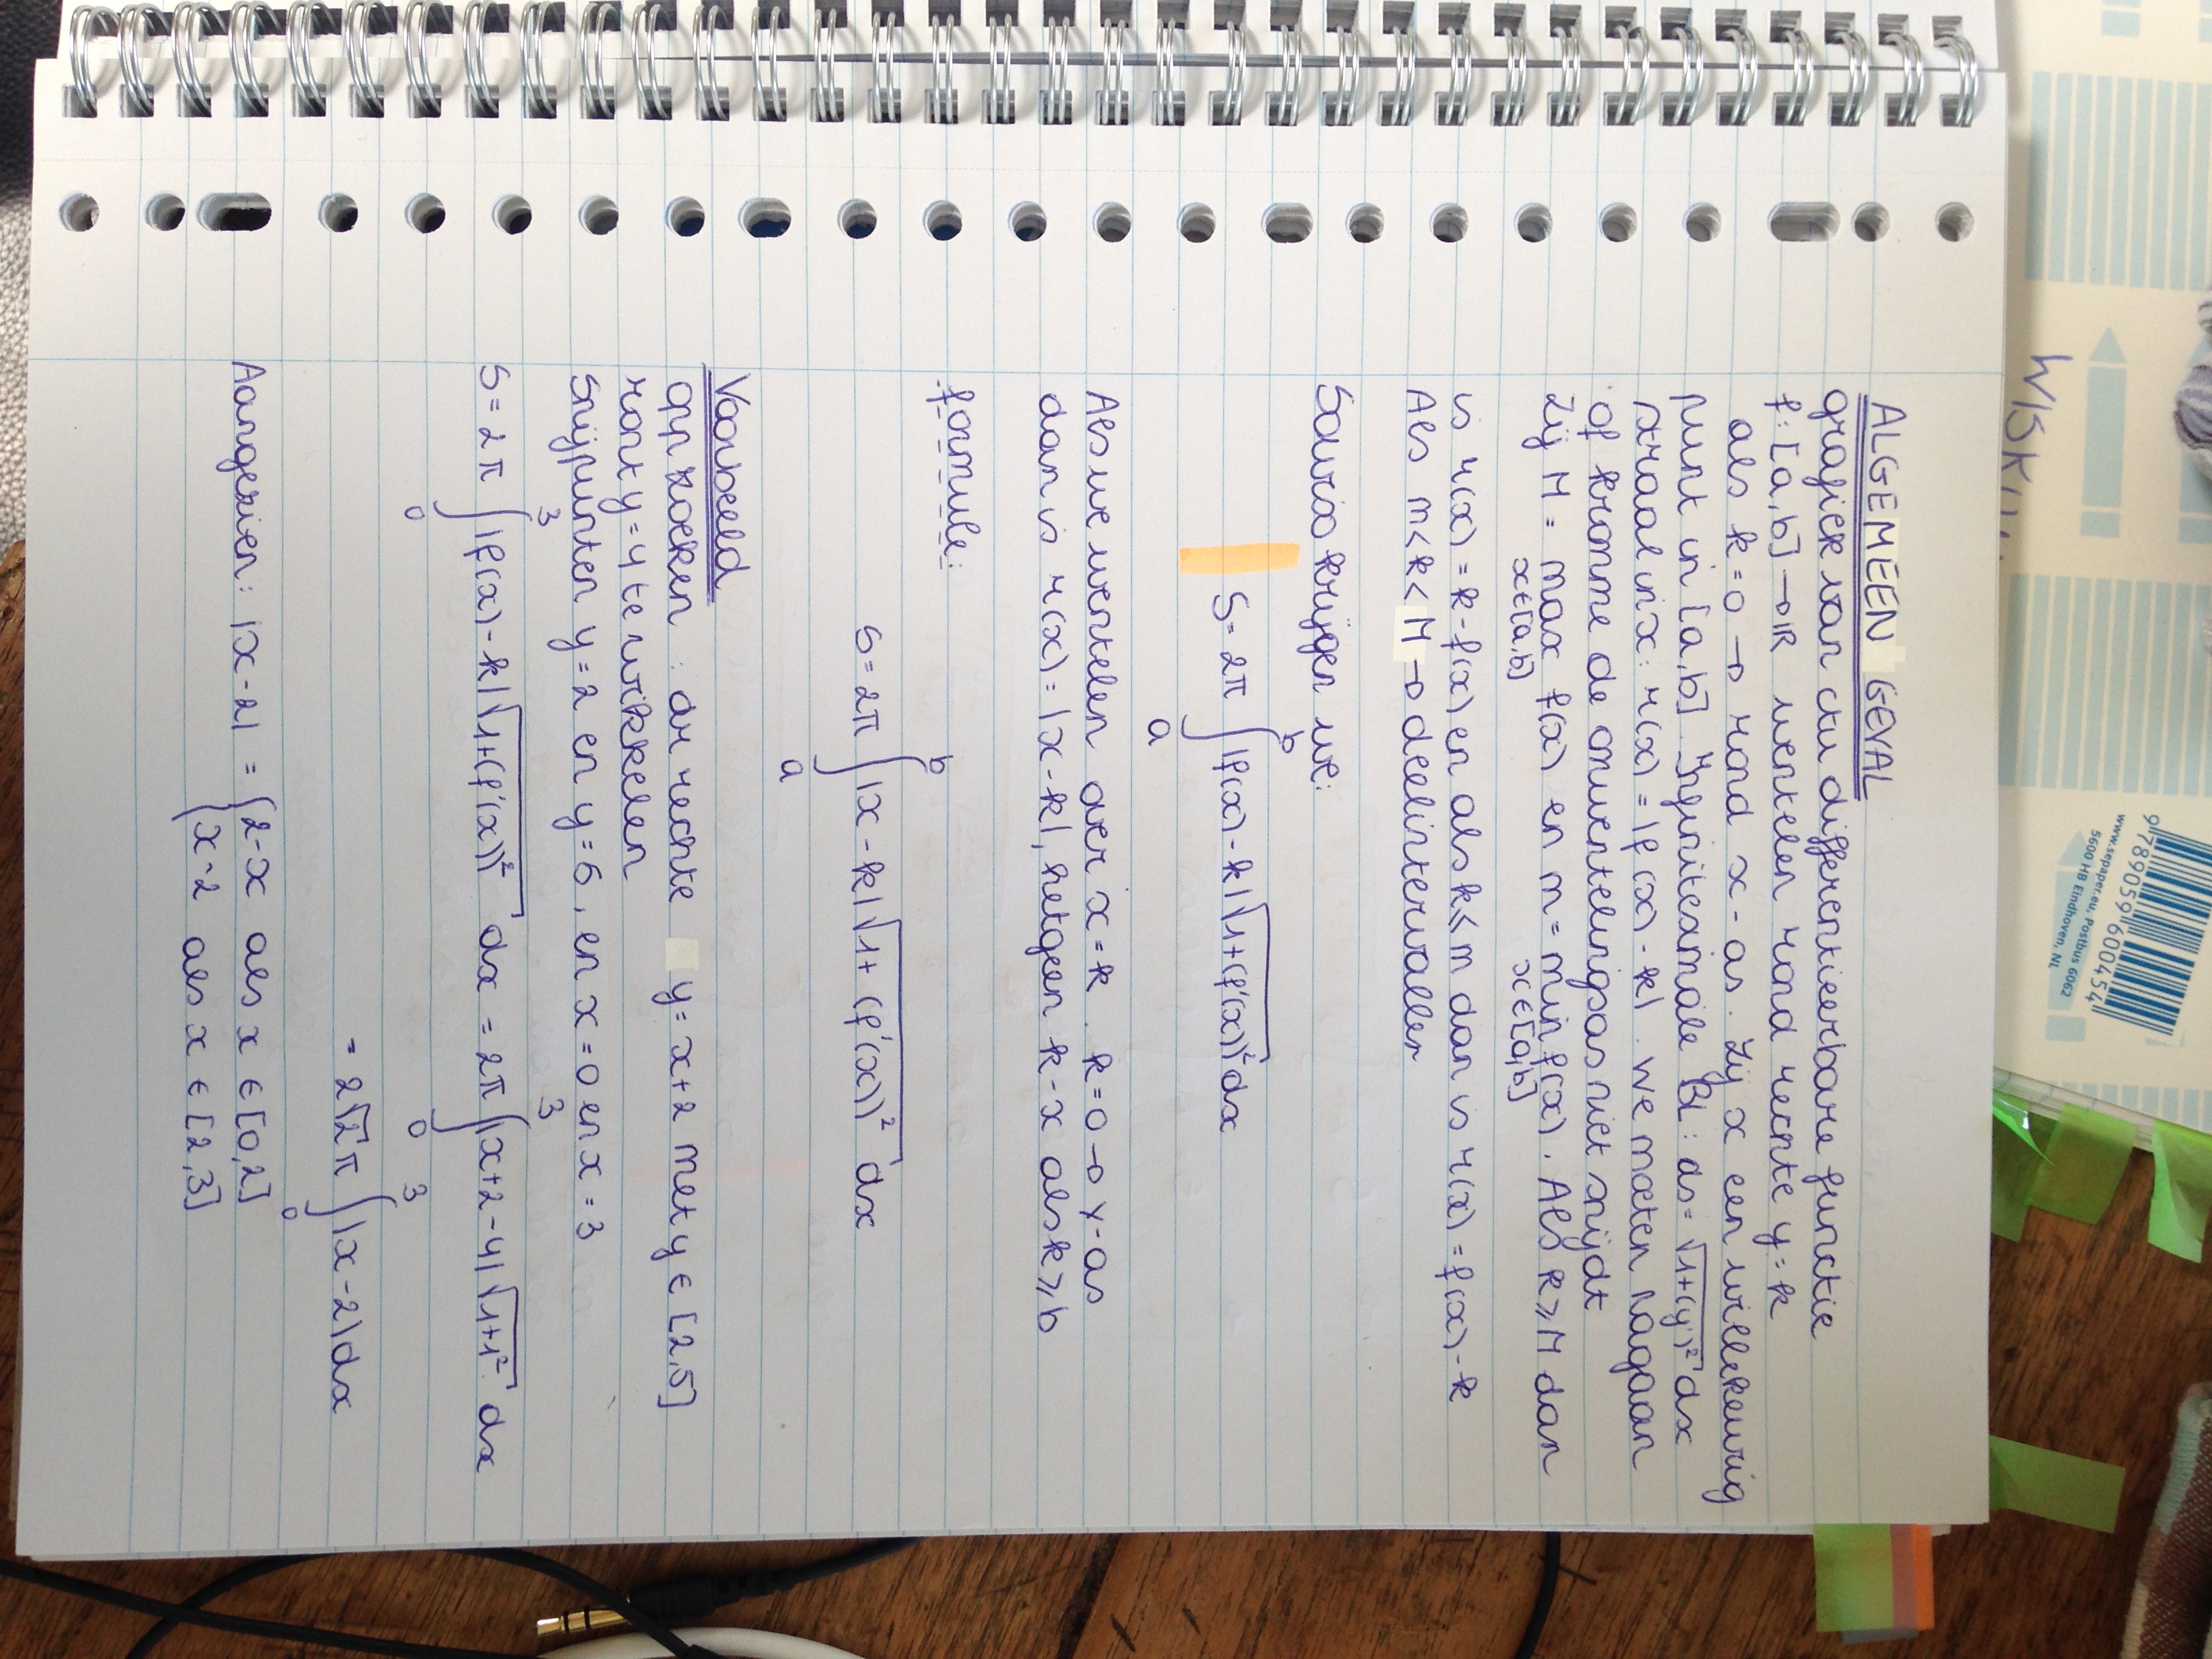 9 789059 600454
www.sepaper.eu, Postbus 6062
5600 HB Eindhoven, NL
WISKU
ALGEMEEN GEVAL
grafiek van ctu differentieerbare functie
f: [a,b] → IR wentelen rond rechte y = k
als k = 0 → rond x-as. Zij x een willekeurig
punt in [a,b]. Infinitesimale BL: ds = √(1+(y')²) dx
straal in x: r(x) = |f(x) - k|. We moeten nagaan
of kromme de omwentelingsas niet snijdt
Zij M = max f(x) en m = min f(x). Als k ≥ M dan
x∈[a,b] x∈[a,b]
is r(x) = k - f(x) en als k ≤ m dan is r(x) = f(x) - k
Als m < k < M → deelintervallen
Sowieso krijgen we:
S = 2π ∫_a^b |f(x) - k| √(1+(f'(x))²) dx
Als we wentelen over x = k. k = 0 → y-as
dan is r(x) = |x - k|, hetgeen k - x als k ≥ b
formule:
S = 2π ∫_a^b |x - k| √(1+(f'(x))²) dx
Voorbeeld
opp zoeken: dr rechte y = x+2 met y ∈ [2,5]
ront y = 4 te wikkelen
Snijpunten y = 2 en y = 5, en x = 0 en x = 3
S = 2π ∫_0^3 |f(x) - k| √(1+(f'(x))²) dx = 2π ∫_0^3 |x+2-4| √(1+1²) dx
= 2√2 π ∫_0^3 |x-2| dx
Aangezien: |x-2| = { 2-x als x ∈ [0,2]
{ x-2 als x ∈ [2,3]